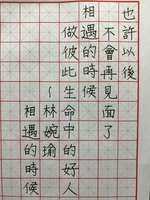 也許以後
不會再見面了
相遇的時候
做彼此生命中的好人
～林婉瑜
相遇的時候